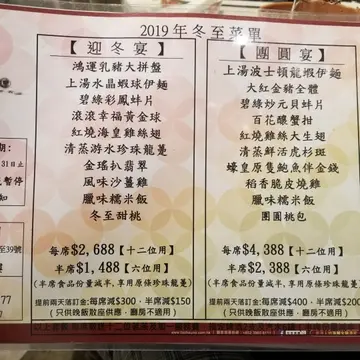 2019年冬至菜單
【迎冬宴】
鴻運乳豬大拼盤
上湯水晶蝦球伊麵
碧綠彩鳳蚌片
滾滾幸福黃金球
紅燒海皇雞絲翅
清蒸游水珍珠龍躉
金瑤扒翡翠
風味沙薑雞
臘味糯米飯
冬至甜桃
每席$2,688【十二位用】
半席$1,488【六位用】
(半席食品份量減半，享用原條珍珠龍躉)
提前兩天落訂金:每席減$300，半席減$150
(只供晚飯散座供應，廳房不適用)
【團圓宴】
上湯波士頓龍蝦伊麵
大紅金豬全體
碧綠炒元貝蚌片
百花釀蟹拑
紅燒雞絲大生翅
清蒸鮮活虎杉斑
蠔皇原隻鮑魚伴金錢
稻香脆皮燒雞
臘味糯米飯
團圓桃包
每席$4,388【十二位用】
半席$2,388【六位用】
(半席食品份量減半，享用原條珍珠龍躉)
提前兩天落訂金:每席減$400，半席減$200
(只供晚飯散座供應，廳房不適用)
期：
31止
暫停
知
至39號
77